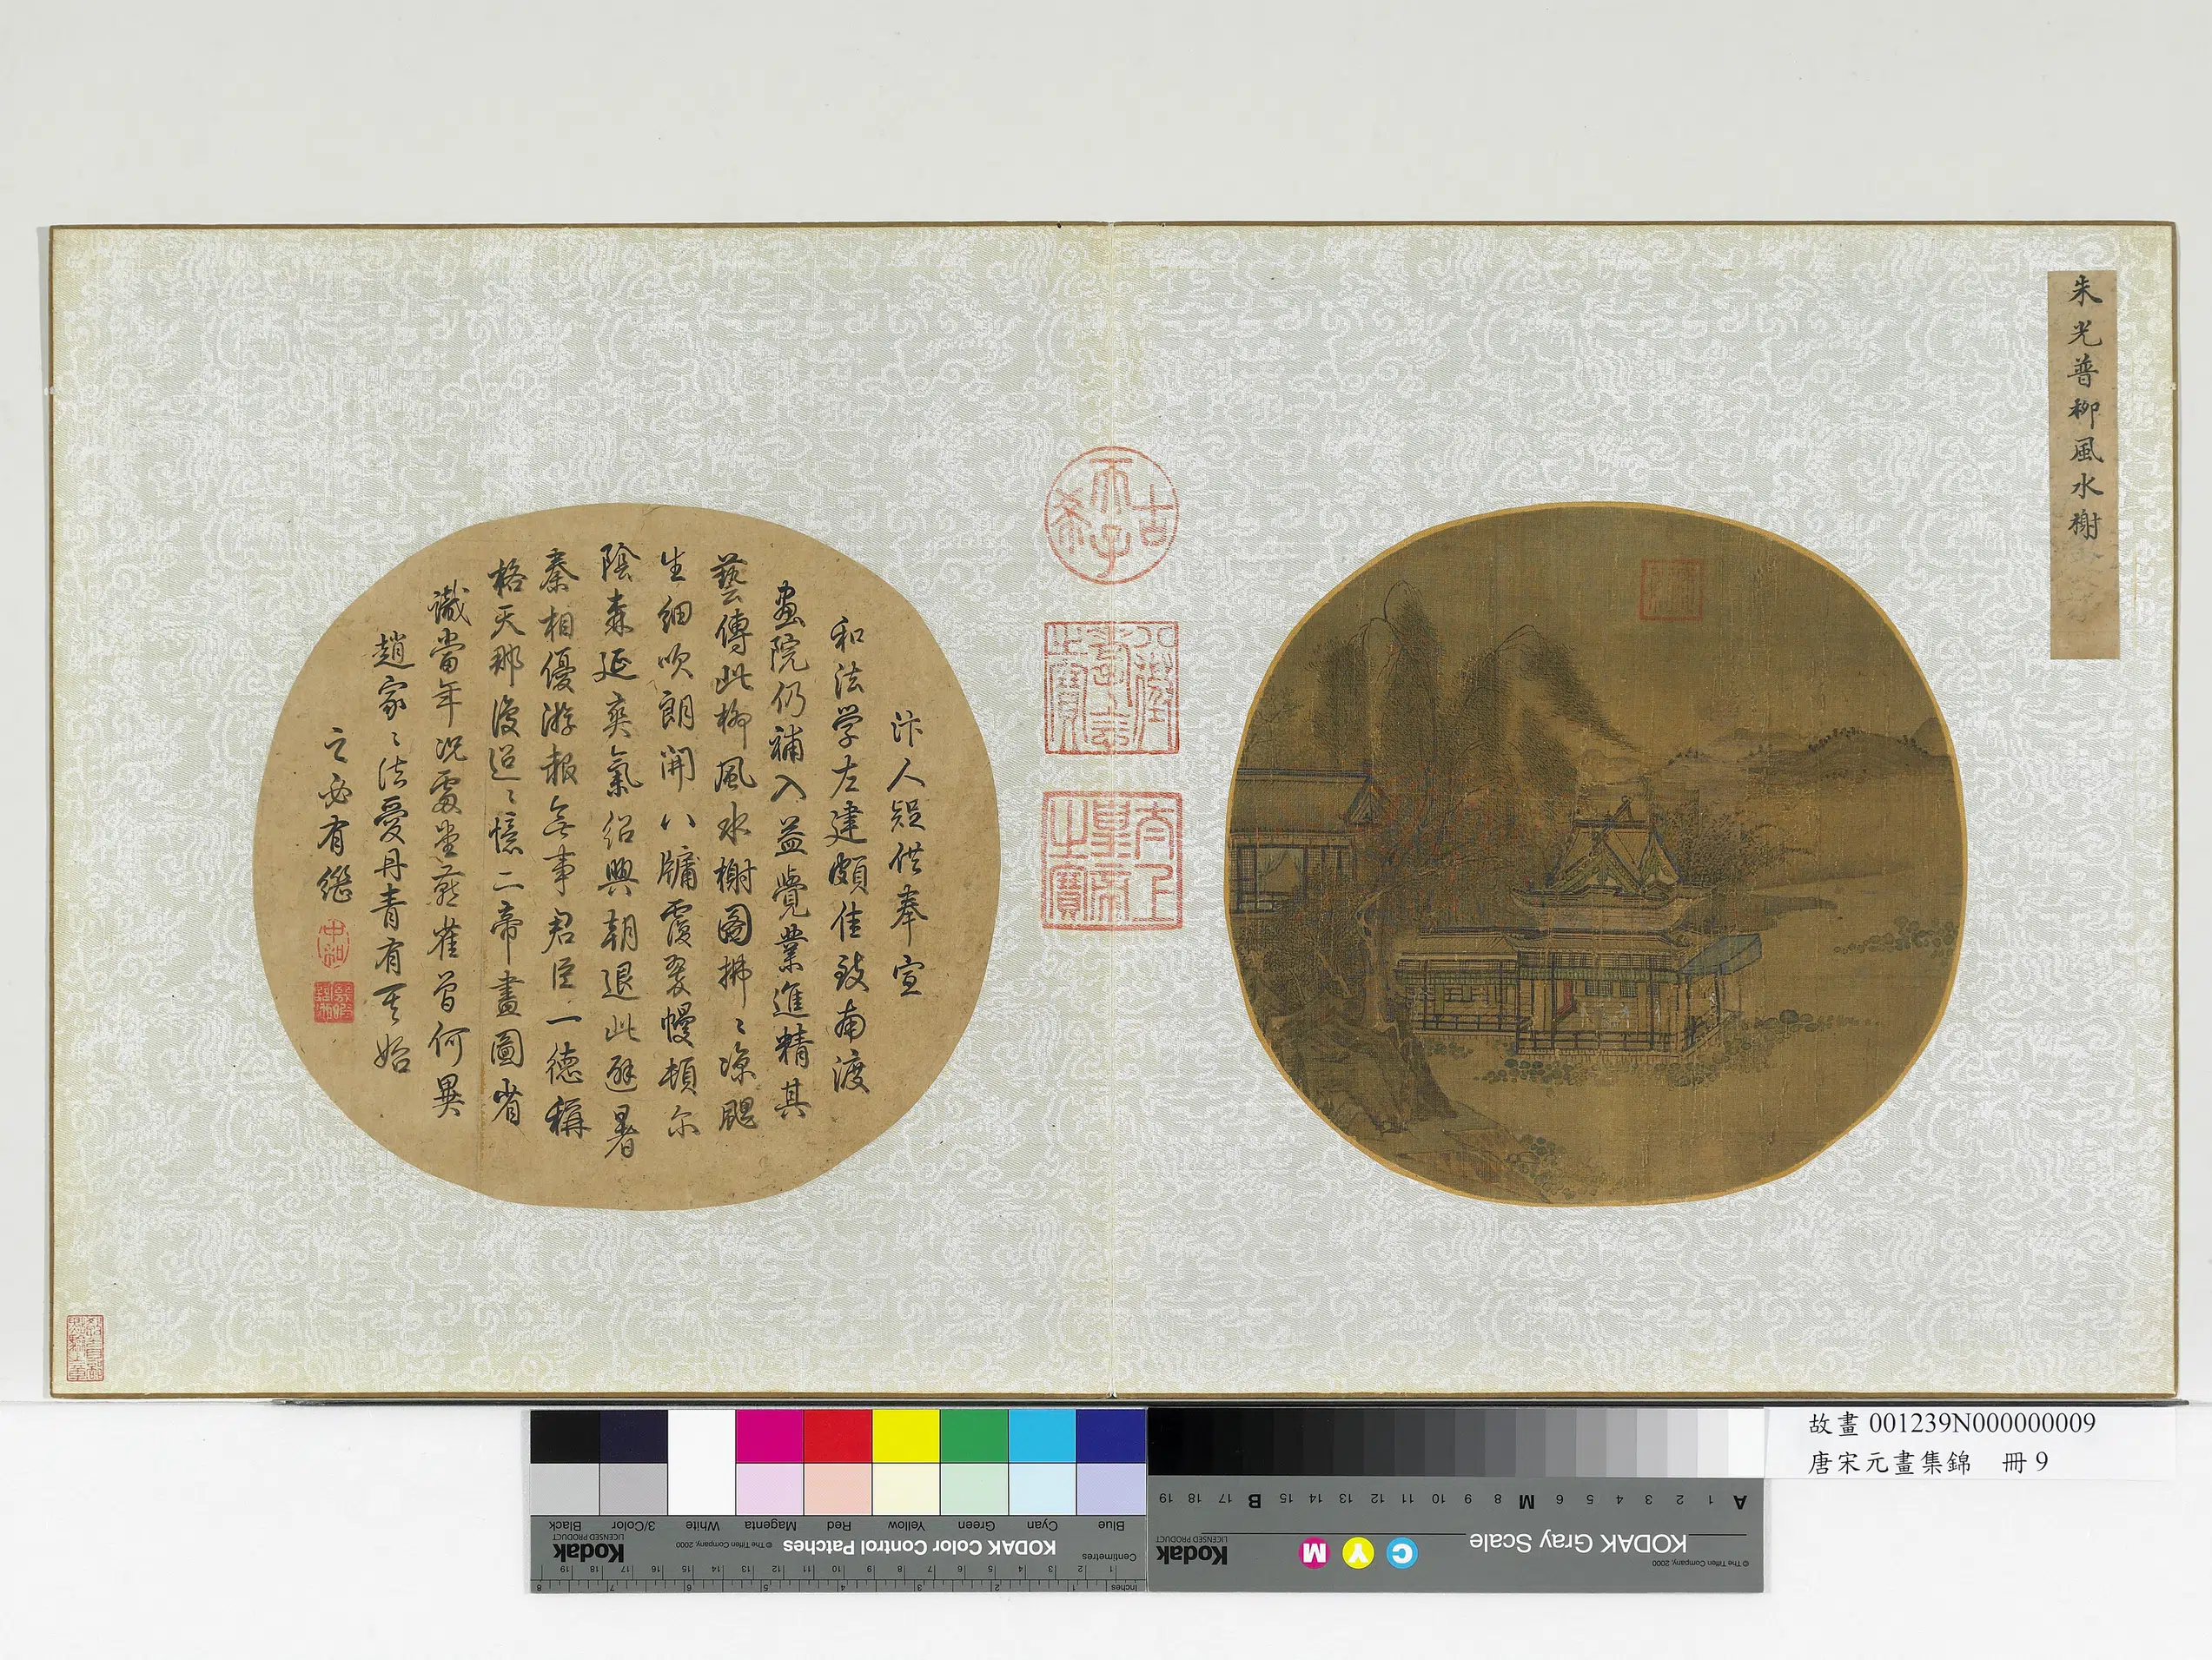 朱光普柳風水榭
古希天子
八徵耄念之寶
太上皇帝之寶
汴人疑供奉宣
和法学左建頗佳致南渡
畫院仍補入益覺業進精其
藝傳此柳風水榭圖拂〻涼颸
生細吹朗開八牖覆翠幔頓尔
陰森延爽氣紹興朝退此避暑
秦相優游報無事君臣一德稱
格天那復迢〻憶二帝畫圖省
識當年况處堂燕雀曾何異
趙家〻法愛丹青有其始
之必有繼
故畫 001239N000000009
唐宋元畫集錦 冊 9
KODAK Color Control Patches
© The Tiffen Company, 2000
Kodak
LICENSED PRODUCT
Blue Cyan Green Yellow Red Magenta White 3/Color Black
Centimetres
Inches
KODAK Gray Scale
C Y M
Kodak
LICENSED PRODUCT
© The Tiffen Company, 2000
A 1 2 3 4 5 6 M 8 9 10 11 12 13 14 15 B 17 18 19